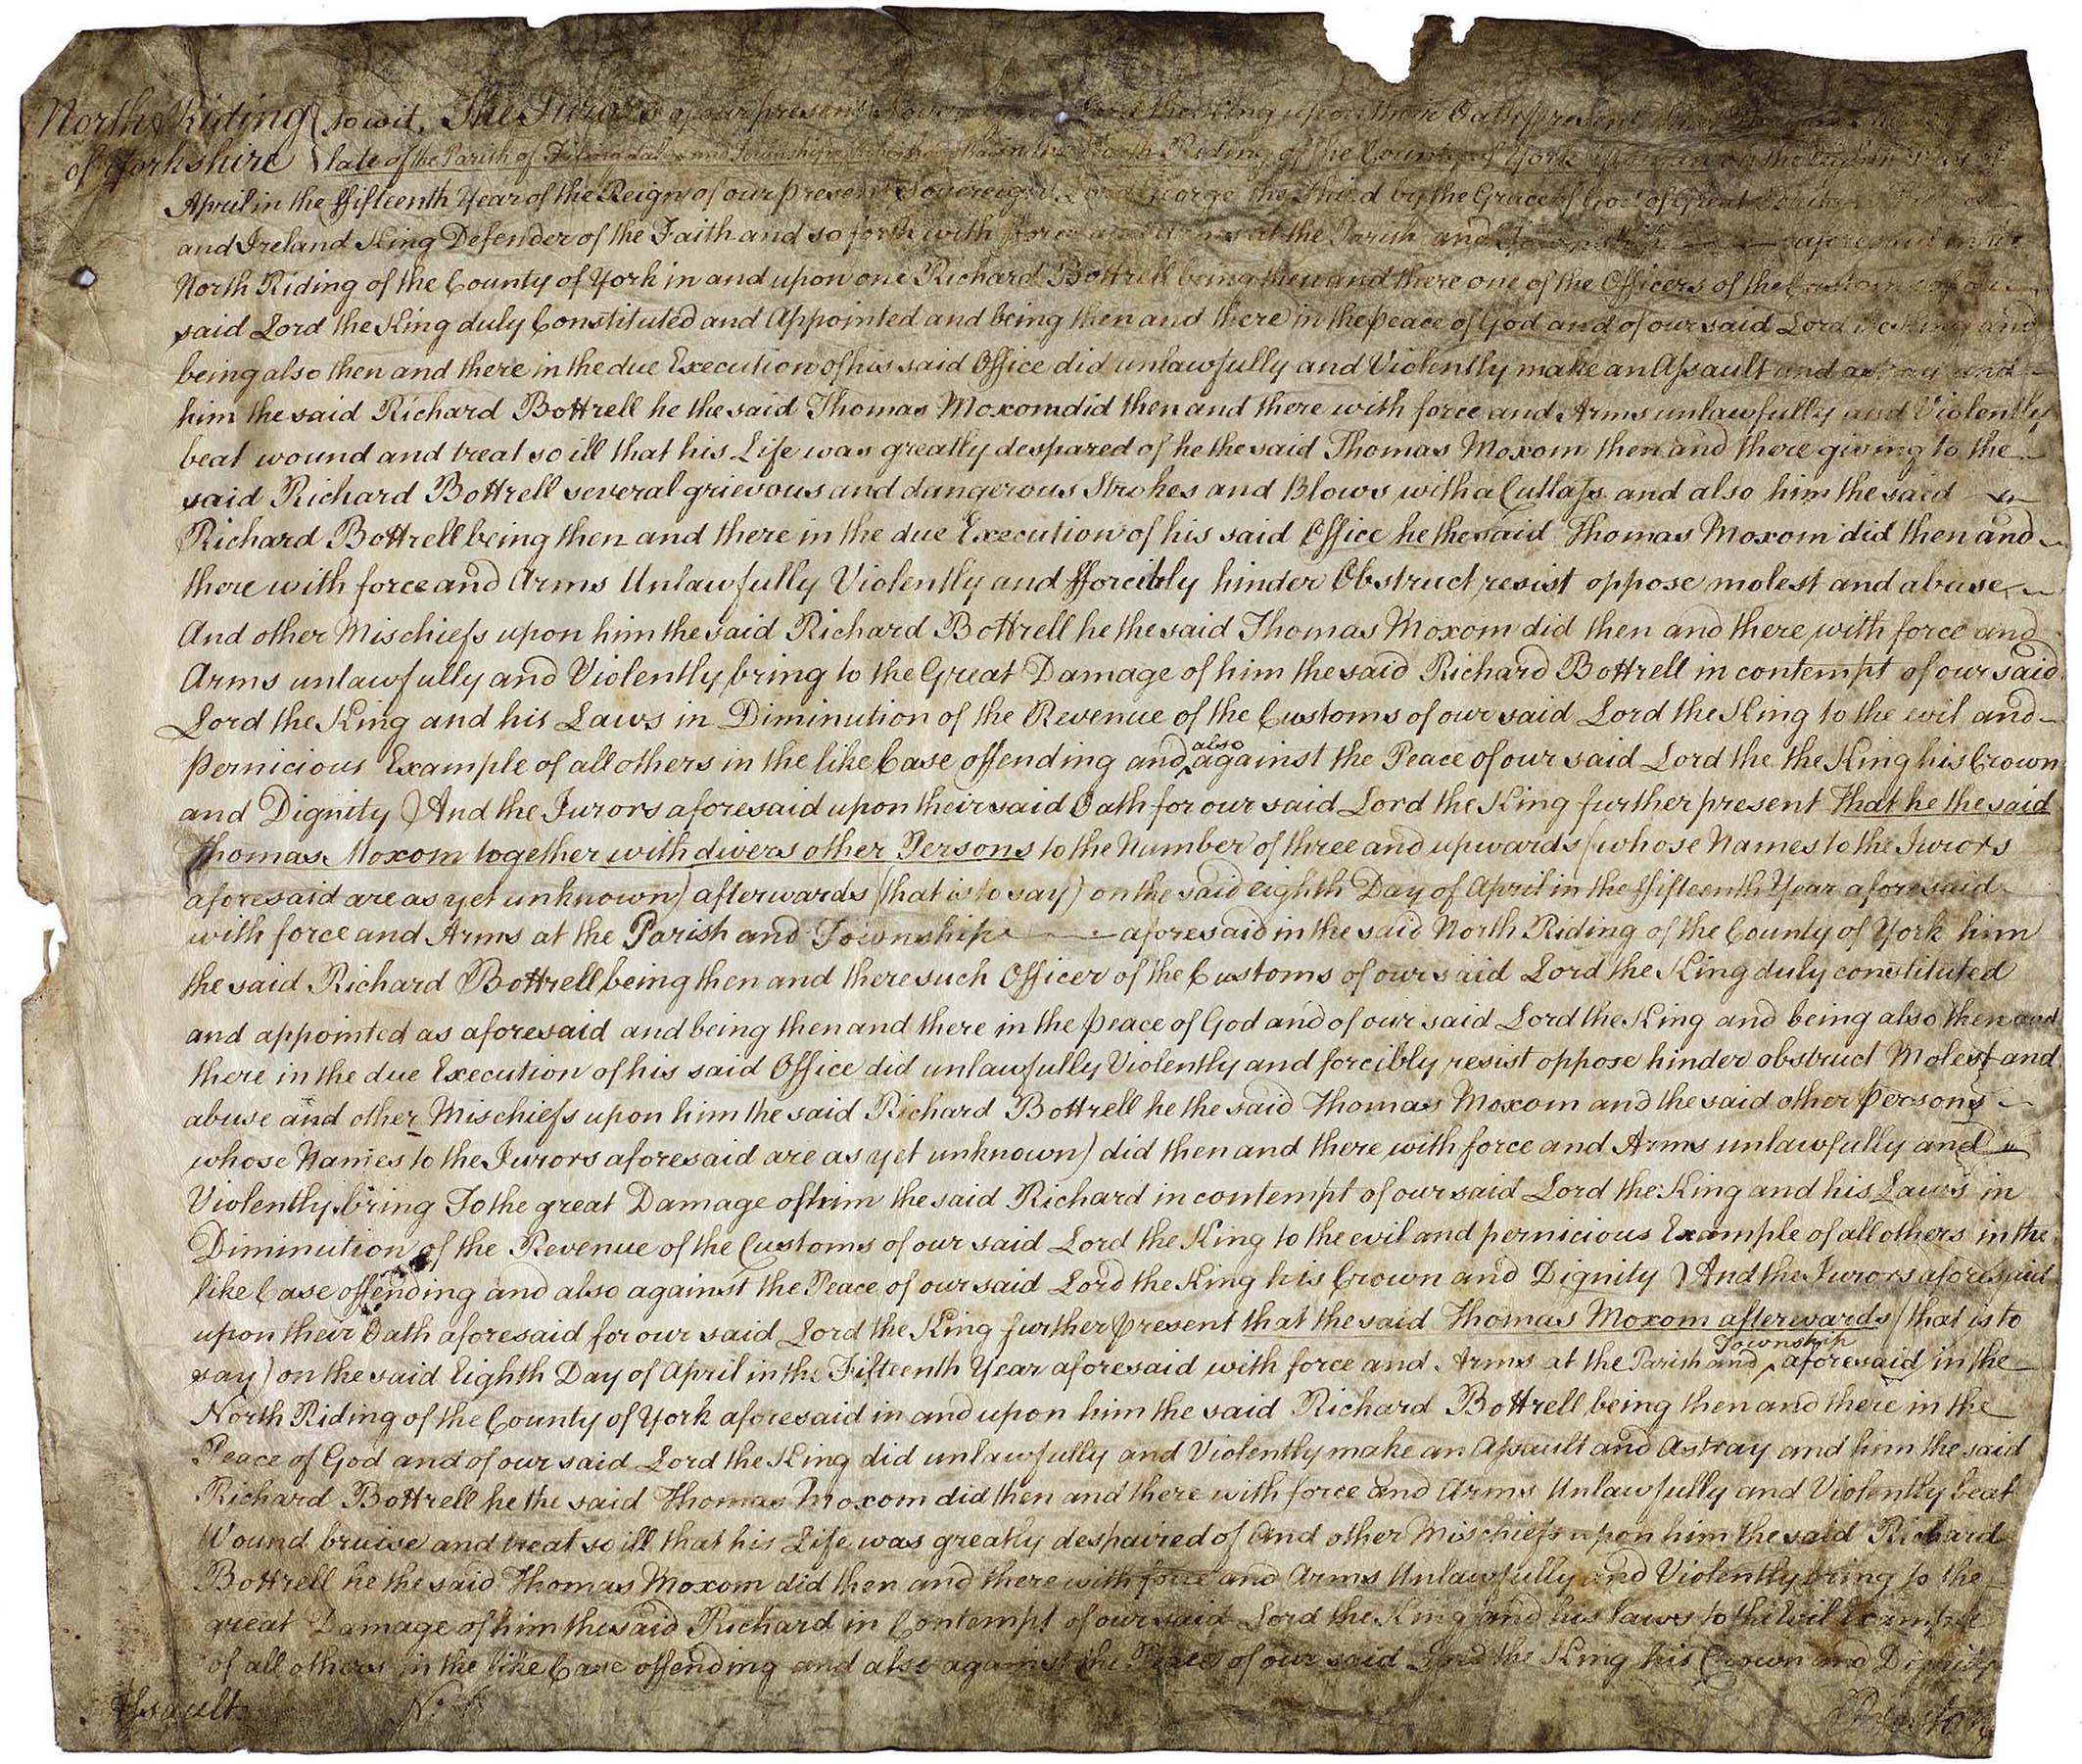 North Riding of Yorkshire } to wit, The Jurors of our present Sovereign Lord the King upon their Oath present that
late of the Parish of and Township in the North Riding of the County of York on the Eighth Day of
April in the Fifteenth Year of the Reign of our present Sovereign Lord George the Third by the Grace of God of Great
and Ireland King Defender of the Faith and so forth with fforce and Arms at the Parish and Township aforesaid in the
North Riding of the County of York in and upon one Richard Bottrell being then and there one of the Officers of the Customs of our
said Lord the King duly Constituted and Appointed and being then and there in the peace of God and of our said Lord the King and
being also then and there in the due Execution of his said Office did unlawfully and Violently make an Assault and and
him the said Richard Bottrell he the said Thomas Moxom did then and there with force and Arms unlawfully and Violently
beat wound and treat so ill that his Life was greatly despared of he the said Thomas Moxom then and there giving to the
said Richard Bottrell several grievous and dangerous Strokes and Blows with a Cutlass and also him the said
Richard Bottrell being then and there in the due Execution of his said Office he the said Thomas Moxom did then and
there with force and Arms Unlawfully Violently and fforcibly hinder Obstruct resist oppose molest and abuse
And other Mischiefs upon him the said Richard Bottrell he the said Thomas Moxom did then and there with force and
Arms unlawfully and Violently bring to the Great Damage of him the said Richard Bottrell in contempt of our said
Lord the King and his Laws in Diminution of the Revenue of the Customs of our said Lord the King to the evil and
Pernicious Example of all others in the like Case offending and also against the Peace of our said Lord the the King his Crown
and Dignity) And the Jurors aforesaid upon their said Oath for our said Lord the King further present That he the said
Thomas Moxom together with divers other Persons to the Number of three and upwards (whose Names to the Jurors
aforesaid are as yet unknown) afterwards (that is to say) on the said eighth Day of April in the ffifteenth Year aforesaid
with force and Arms at the Parish and Township aforesaid in the said North Riding of the County of York him
the said Richard Bottrell being then and there such Officer of the Customs of our said Lord the King duly constituted
and appointed as aforesaid and being then and there in the peace of God and of our said Lord the King and being also then and
there in the due Execution of his said Office did unlawfully Violently and forcibly resist oppose hinder obstruct Molest and
abuse and other Mischiefs upon him the said Richard Bottrell he the said Thomas Moxom and the said other Persons
whose Names to the Jurors aforesaid are as yet unknown) did then and there with force and Arms unlawfully and
Violently bring To the great Damage of him the said Richard in contempt of our said Lord the King and his Laws in
Diminution of the Revenue of the Customs of our said Lord the King to the evil and pernicious Example of all others in the
like Case offending and also against the Peace of our said Lord the King his Crown and Dignity) And the Jurors aforesaid
upon their Oath aforesaid for our said Lord the King further Present that the said Thomas Moxom afterwards (that is to
say) on the said Eighth Day of April in the Fifteenth Year aforesaid with force and Arms at the Parish and Township aforesaid in the
North Riding of the County of York aforesaid in and upon him the said Richard Bottrell being then and there in the
Peace of God and of our said Lord the King did unlawfully and Violently make an Assault and Astray and him the said
Richard Bottrell he the said Thomas Moxom did then and there with force and Arms Unlawfully and Violently beat
Wound bruise and treat so ill that his Life was greatly despaired of And other Mischiefs upon him the said Richard
Bottrell he the said Thomas Moxom did then and there with force and Arms Unlawfully and Violently bring to the
great Damage of him the said Richard in Contempt of our said Lord the King and his laws to the Evil Example
of all others in the like Case offending and also against the Peace of our said Lord the King his Crown and Dignity
Assault